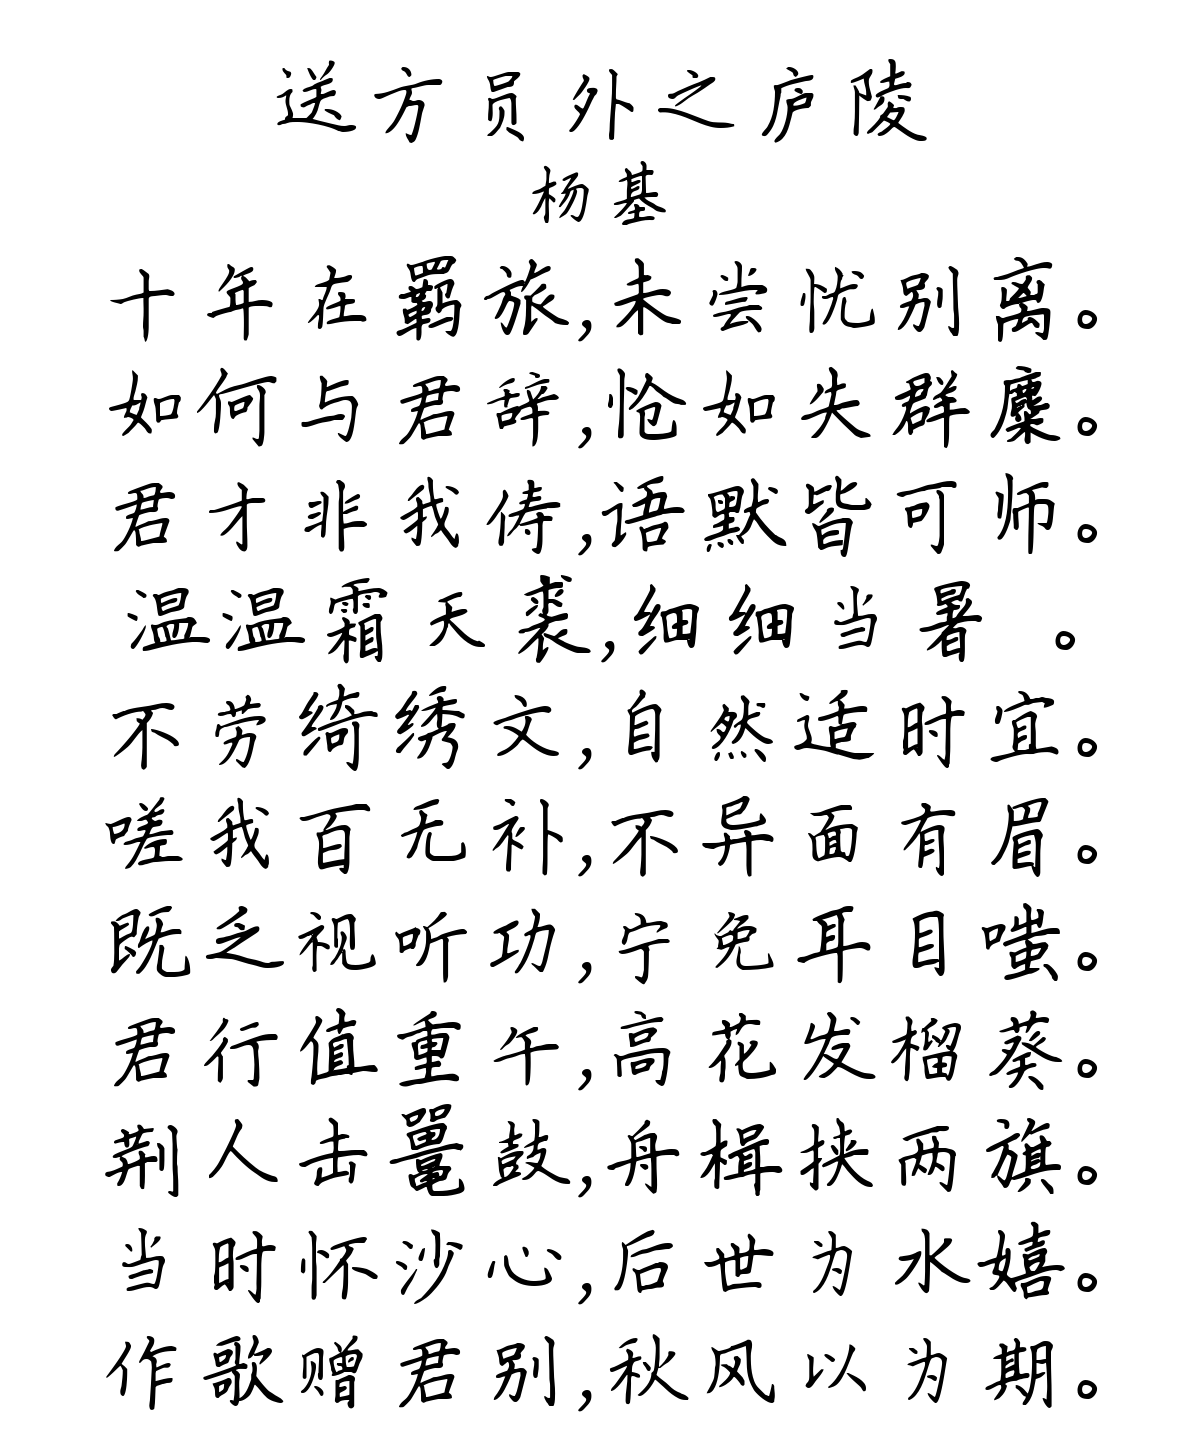 送方员外之庐陵
杨基
十年在羁旅,未尝忧别离。
如何与君辞,怆如失群麋。
君才非我俦,语默皆可师。
温温霜天裘,细细当暑 。
不劳绮绣文,自然适时宜。
嗟我百无补,不异面有眉。
既乏视听功,宁免耳目嗤。
君行值重午,高花发榴葵。
荆人击鼍鼓,舟楫挟两旗。
当时怀沙心,后世为水嬉。
作歌赠君别,秋风以为期。